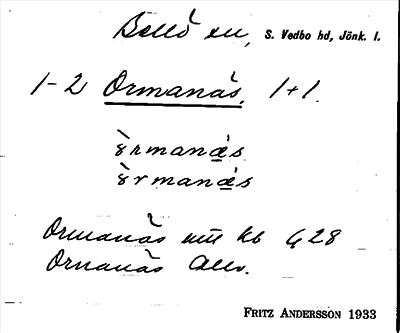 Bellö sn, S. Vedbo hd, Jönk. l.
1-2 Ormanäs, 1+1.
òrmanä̀s
òrmanä̀s
Ormanäs mtl kb G 28
Ormanäs Allm.
FRITZ ANDERSSON 1933